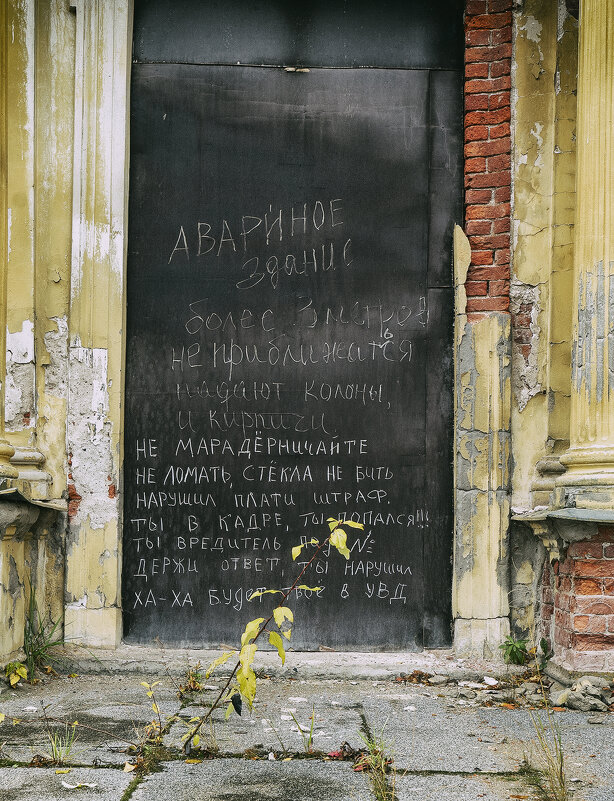 АВАРИЙНОЕ
здание
более 3 метров
не приближатся
ь
падают колоны,
и кирпичи.
НЕ МАРАДЁРНИЧАЙТЕ
НЕ ЛОМАТЬ, СТЁКЛА НЕ БИТЬ
НАРУШИЛ ПЛАТИ ШТРАФ.
ТЫ В КАДРЕ, ТЫ ПОПАЛСЯ!!!
ТЫ ВРЕДИТЕЛЬ №
ДЕРЖИ ОТВЕТ, ТЫ НАРУШИЛ
ХА-ХА БУДЕТ ВСЁ В УВД